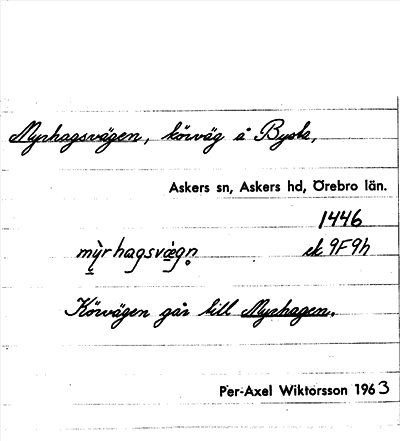 Myrhagsvägen, körväg å Bysta,
Askers sn, Askers hd, Örebro län.
1446
mỳ̨rhagsvæ̀gn̥ ek 9F9h
Körvägen går till Myrhagen.
Per-Axel Wiktorsson 1963